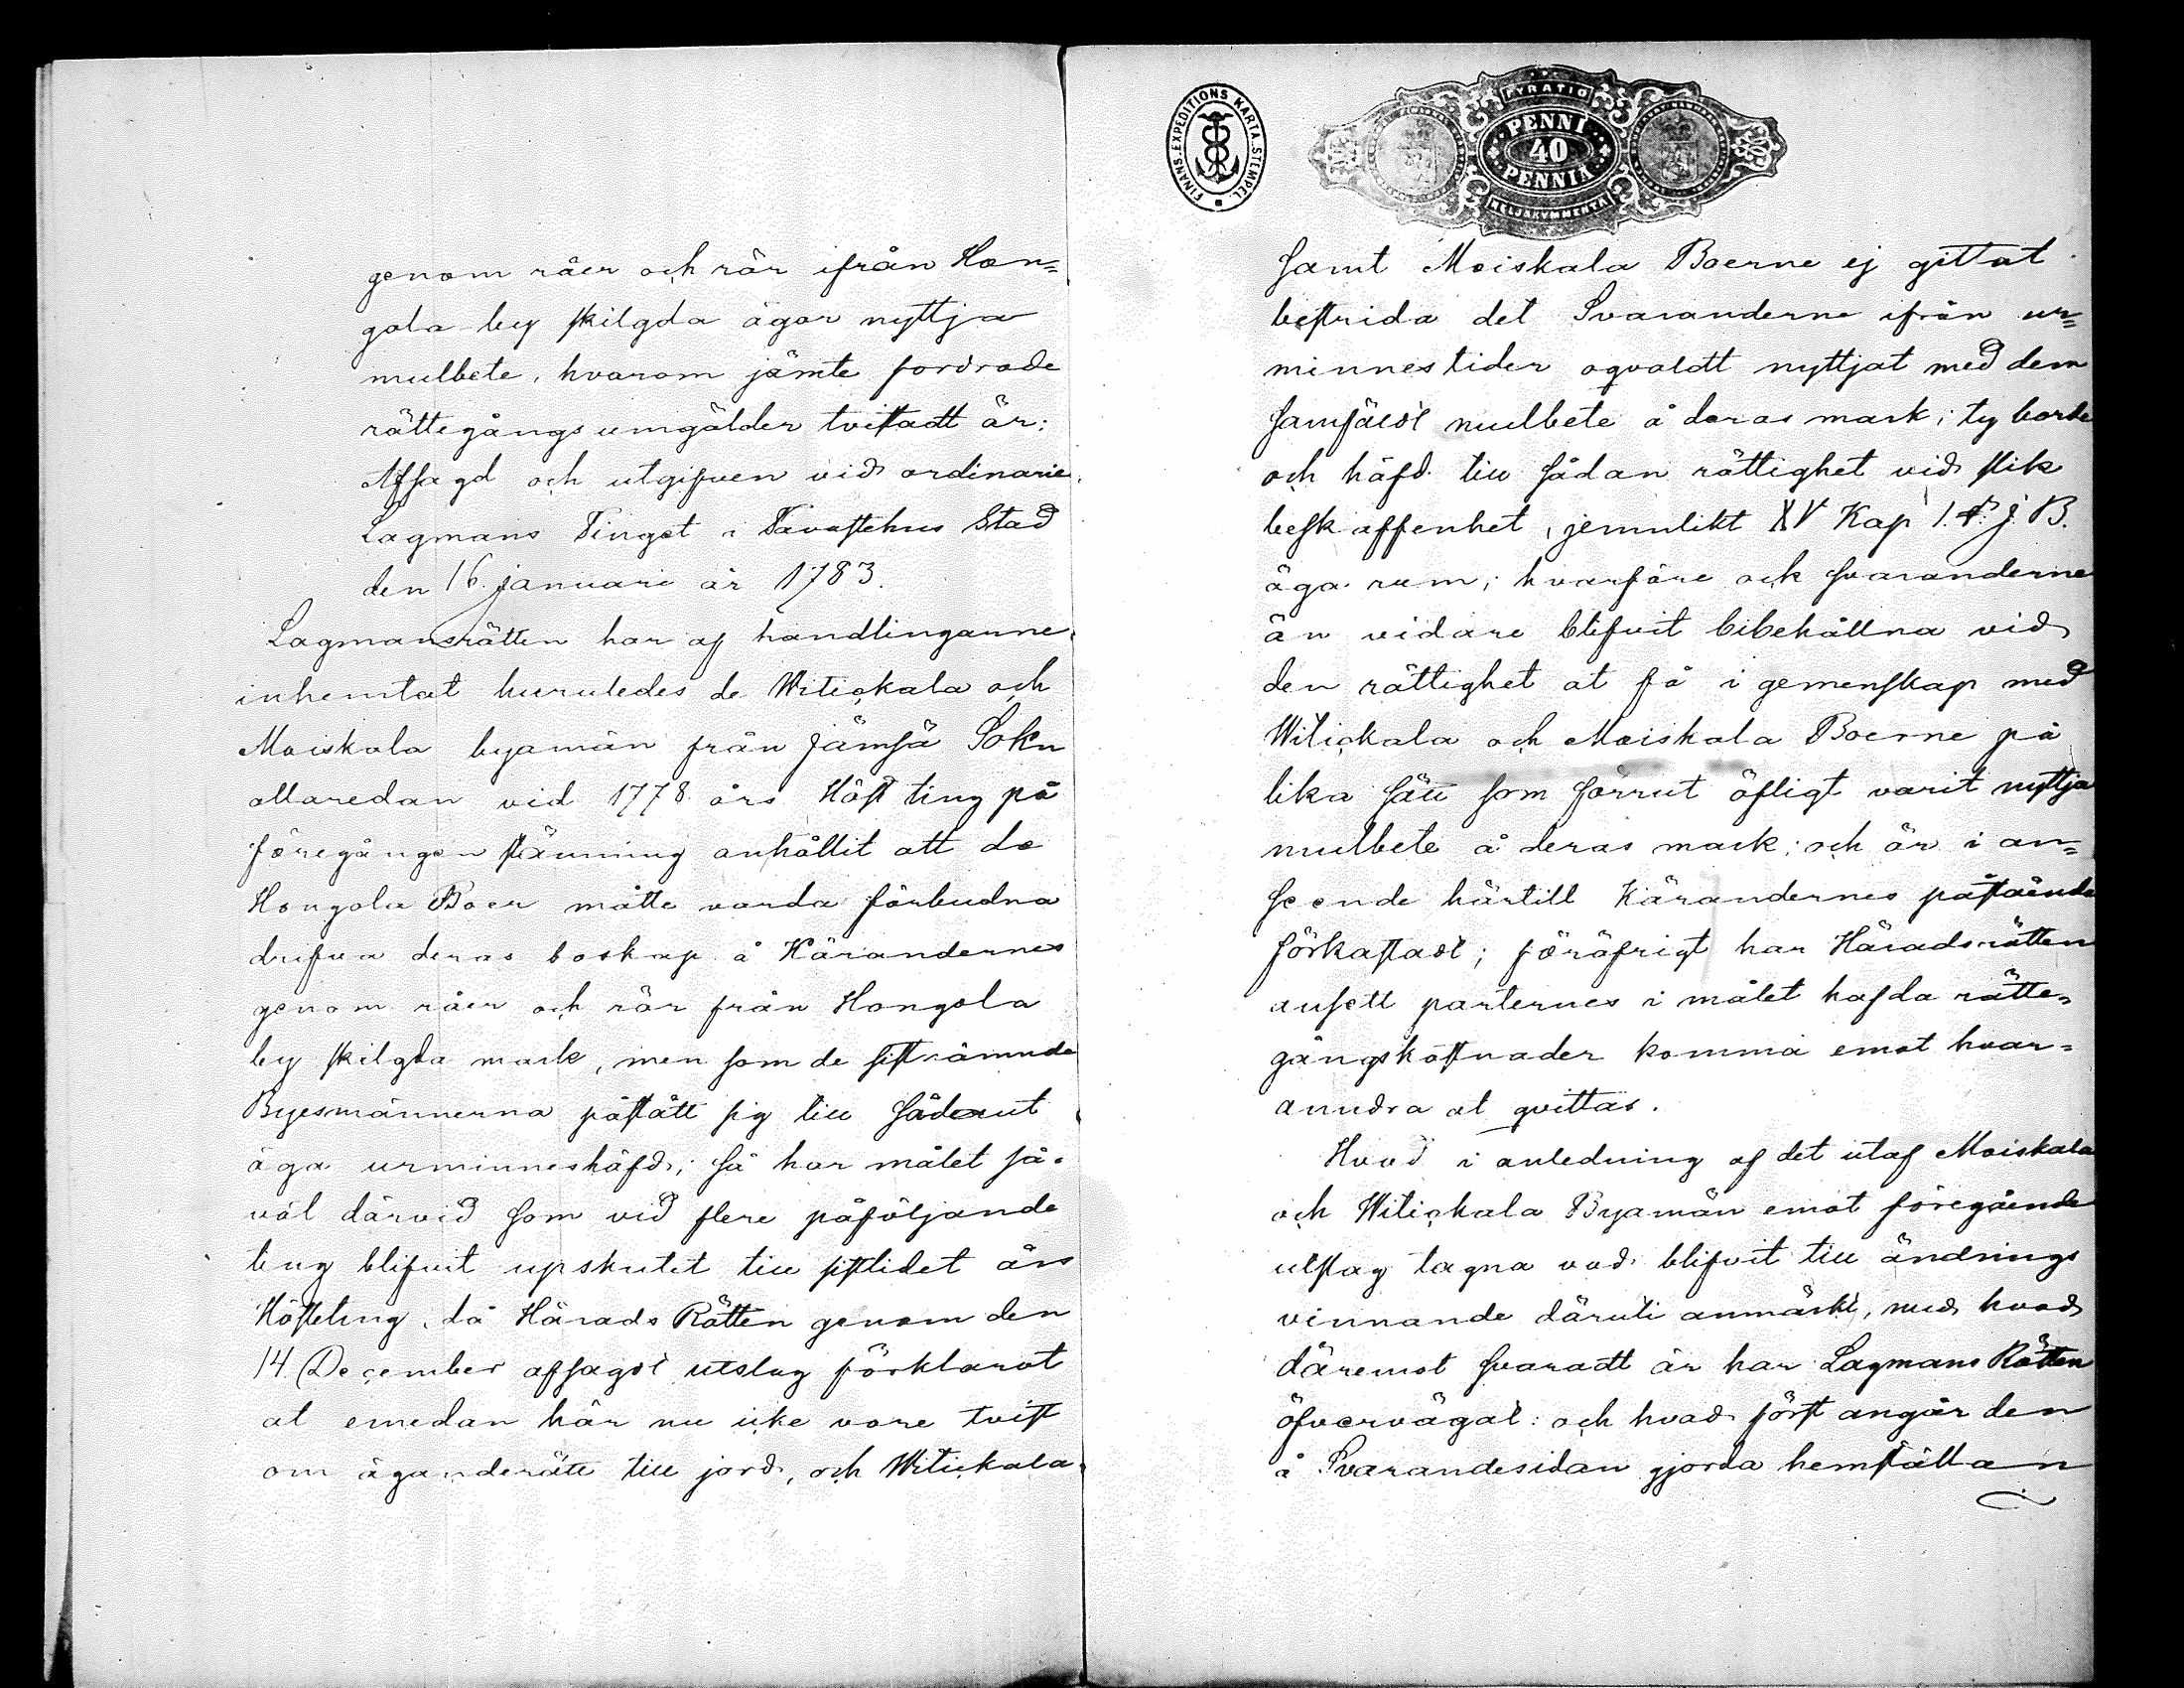 genom råer och rör ifrån Hon=
gola by skilgda ägor nyttja
mulbete, hvarom jämte fordrade
rättegångs umgälder tvistadt är:
Afsagd och utgifven vid ordinarie
Lagmans Tinget i Tavastehus Stad
den 16 januari år 1783.
Lagmansrätten har af handlingarne
inhemtat huruledes de Witickala och
Moiskala byamän från Jämsä Sokn
allaredan vid 1778 års Höst ting på
föregången stämning anhållit att de
Hongola Boer måtte varda förbudna
drifva deras boskap å Kärandernes
genom råer och rör från Hongola
by skilgda mark, men som de sistnämnde
Byesmännerna påstått sig till sådant
äga urminneshäfd; så har målet så=
väl därvid som vid flere påföljande
ting blifvit upskutit till sistlidet års
Hösteting, då Härads Rätten genom den
14 December afsagdt utslag förklarat
at emedan här nu icke vore tvist
om äganderätt till jord, och Witickala
FINANS. EXPEDITIONS KARTA. STEMPEL.
FYRATIO
PENNI
40
PENNIÄ
NELJÄKYMMENTÄ
samt Moiskala Boerne ej gittat
bestrida det Svaranderne ifrån ur=
minnes tider oqvaldt nyttjat med dem
samfäldt mulbete å deras mark; ty borde
och häfd till sådan rättighet vid slik
beskaffenhet, jemnlikt XV Kap 1. §. J. B.
äga rum; hvarföre ock svaranderne
än vidare blifvit bibehållna vid
den rättighet at få i gemenskap med
Witickala och Moiskala Boerne på
lika sätt som förrut öfligt varit nyttja
mulbete å deras mark; och är i an=
seende härtill Kärandernes påstående
förkastadt; föröfrigt har Häradsrätten
ansett parternes i målet hafda rätte=
gångskostnader komma emot hvar=
anndra at qvittas.
Hvad i anledning af det utaf Moiskala
och Witickala Byamän emot föregående
utslag tagna vad blifvit till ändrings
vinnande däruti anmärkt, med hvad
däremot svaradt är har Lagmans Rätten
öfvervägat: och hvad först angår den
å Svarandesidan gjorda hemställan